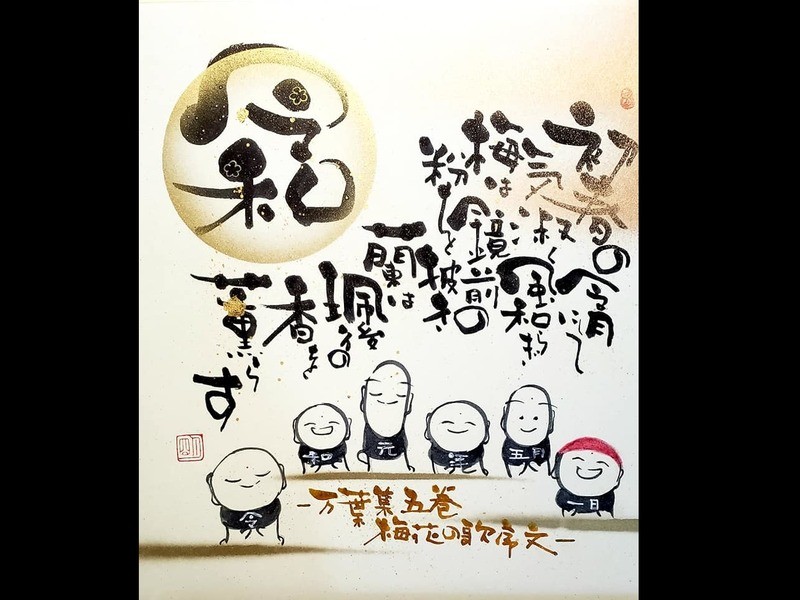 令和
初春の令月にして
気淑く風和らぎ
梅は鏡前の
粉を披き
蘭は
珮後の
香を
薫らす
令
和
元
年
五月
一日
－万葉集五巻
梅花の歌序文－